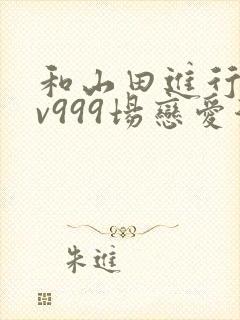 和山田進行
v999場戀愛
朱進